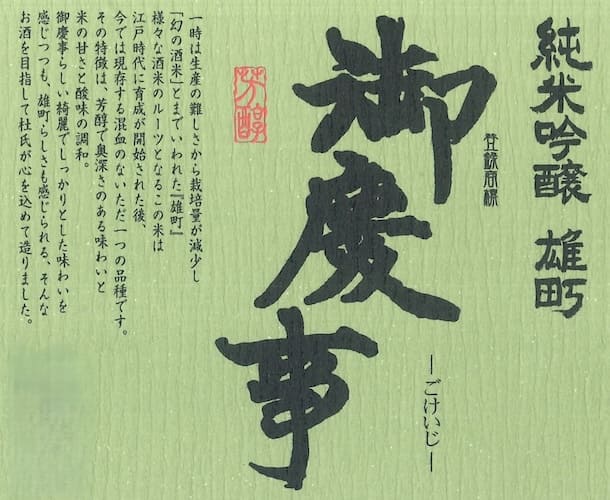 純米吟醸 雄町
登録商標
御慶事
―ごけいじ―
芳醇
一時は生産の難しさから栽培量が減少し
「幻の酒米」とまでいわれた『雄町』
様々な酒米のルーツとなるこの米は
江戸時代に育成が開始された後、
今では現存する混血のないただ一つの品種です。
その特徴は、芳醇で奥深さのある味わいと
米の甘さと酸味の調和。
御慶事らしい綺麗でしっかりとした味わいを
感じつつも、雄町らしさも感じられる、そんな
お酒を目指して杜氏が心を込めて造りました。